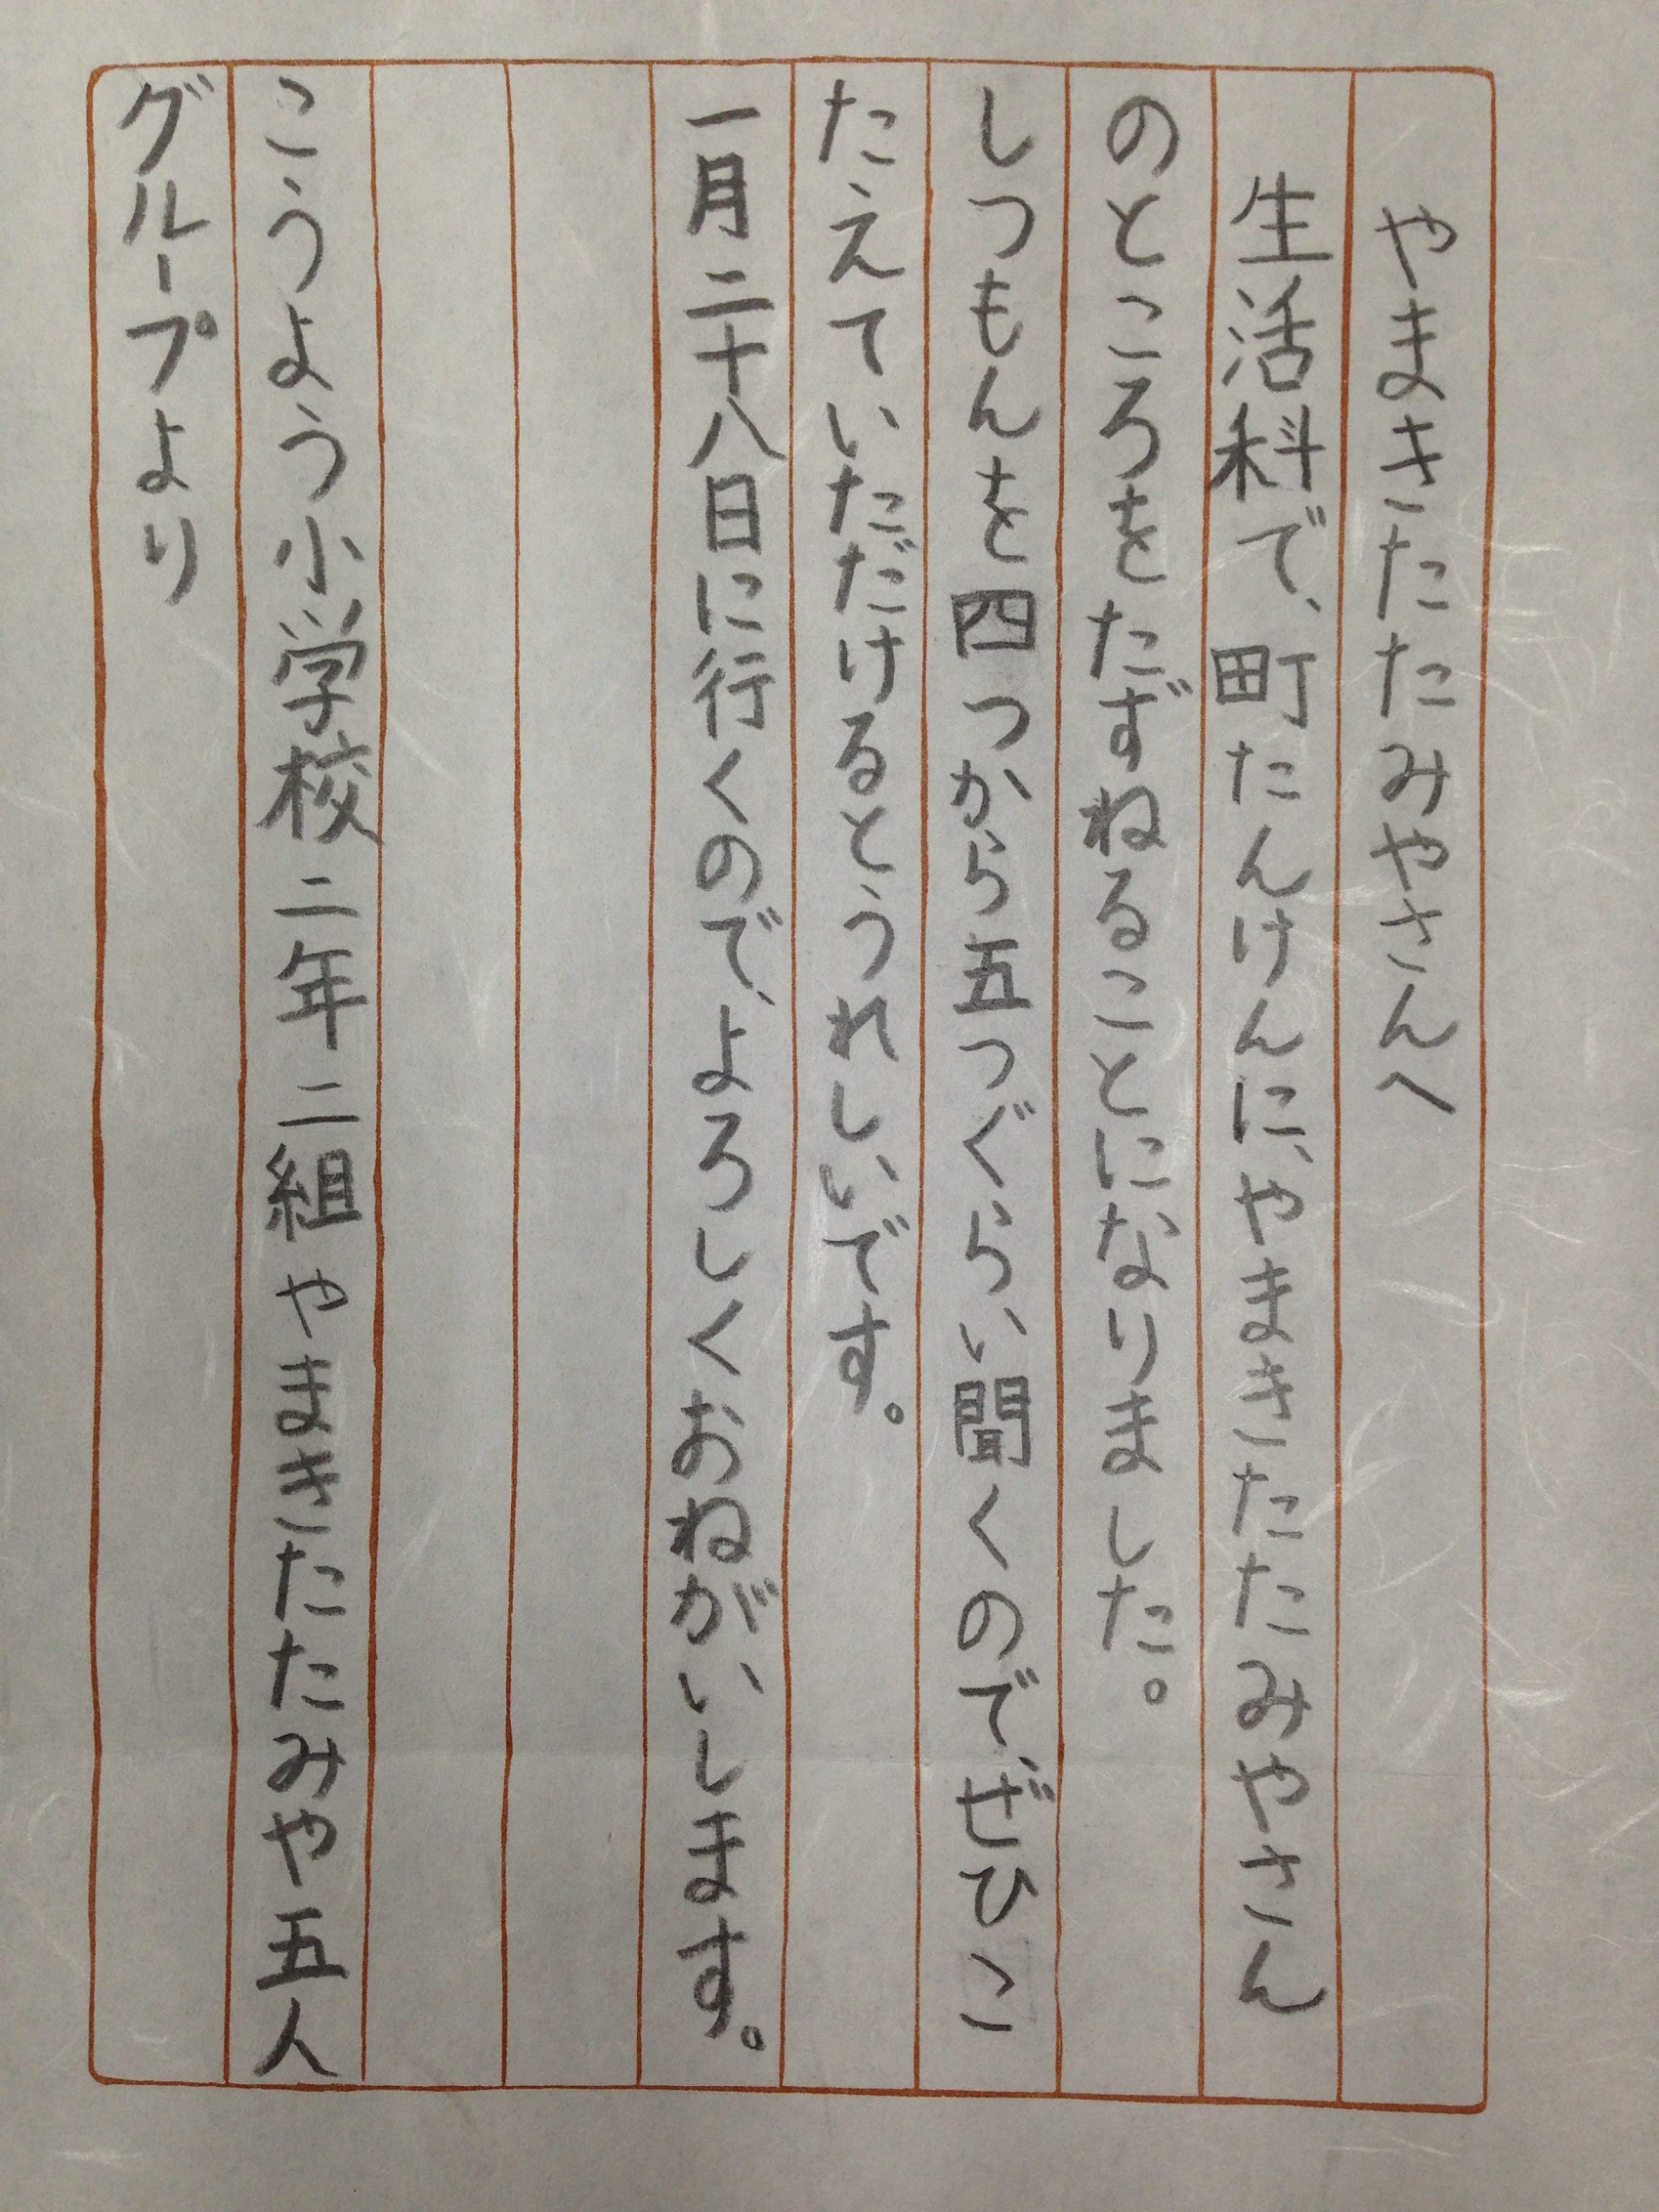 やまきたたみやさんへ
生活科で、町たんけんに、やまきたたみやさん
のところをたずねることになりました。
しつもんを四つから五つぐらい聞くので、ぜひこ
たえていただけるとうれしいです。
一月二十八日に行くので、よろしくおねがいします。
こうよう小学校二年二組やまきたたみや五人
グループより